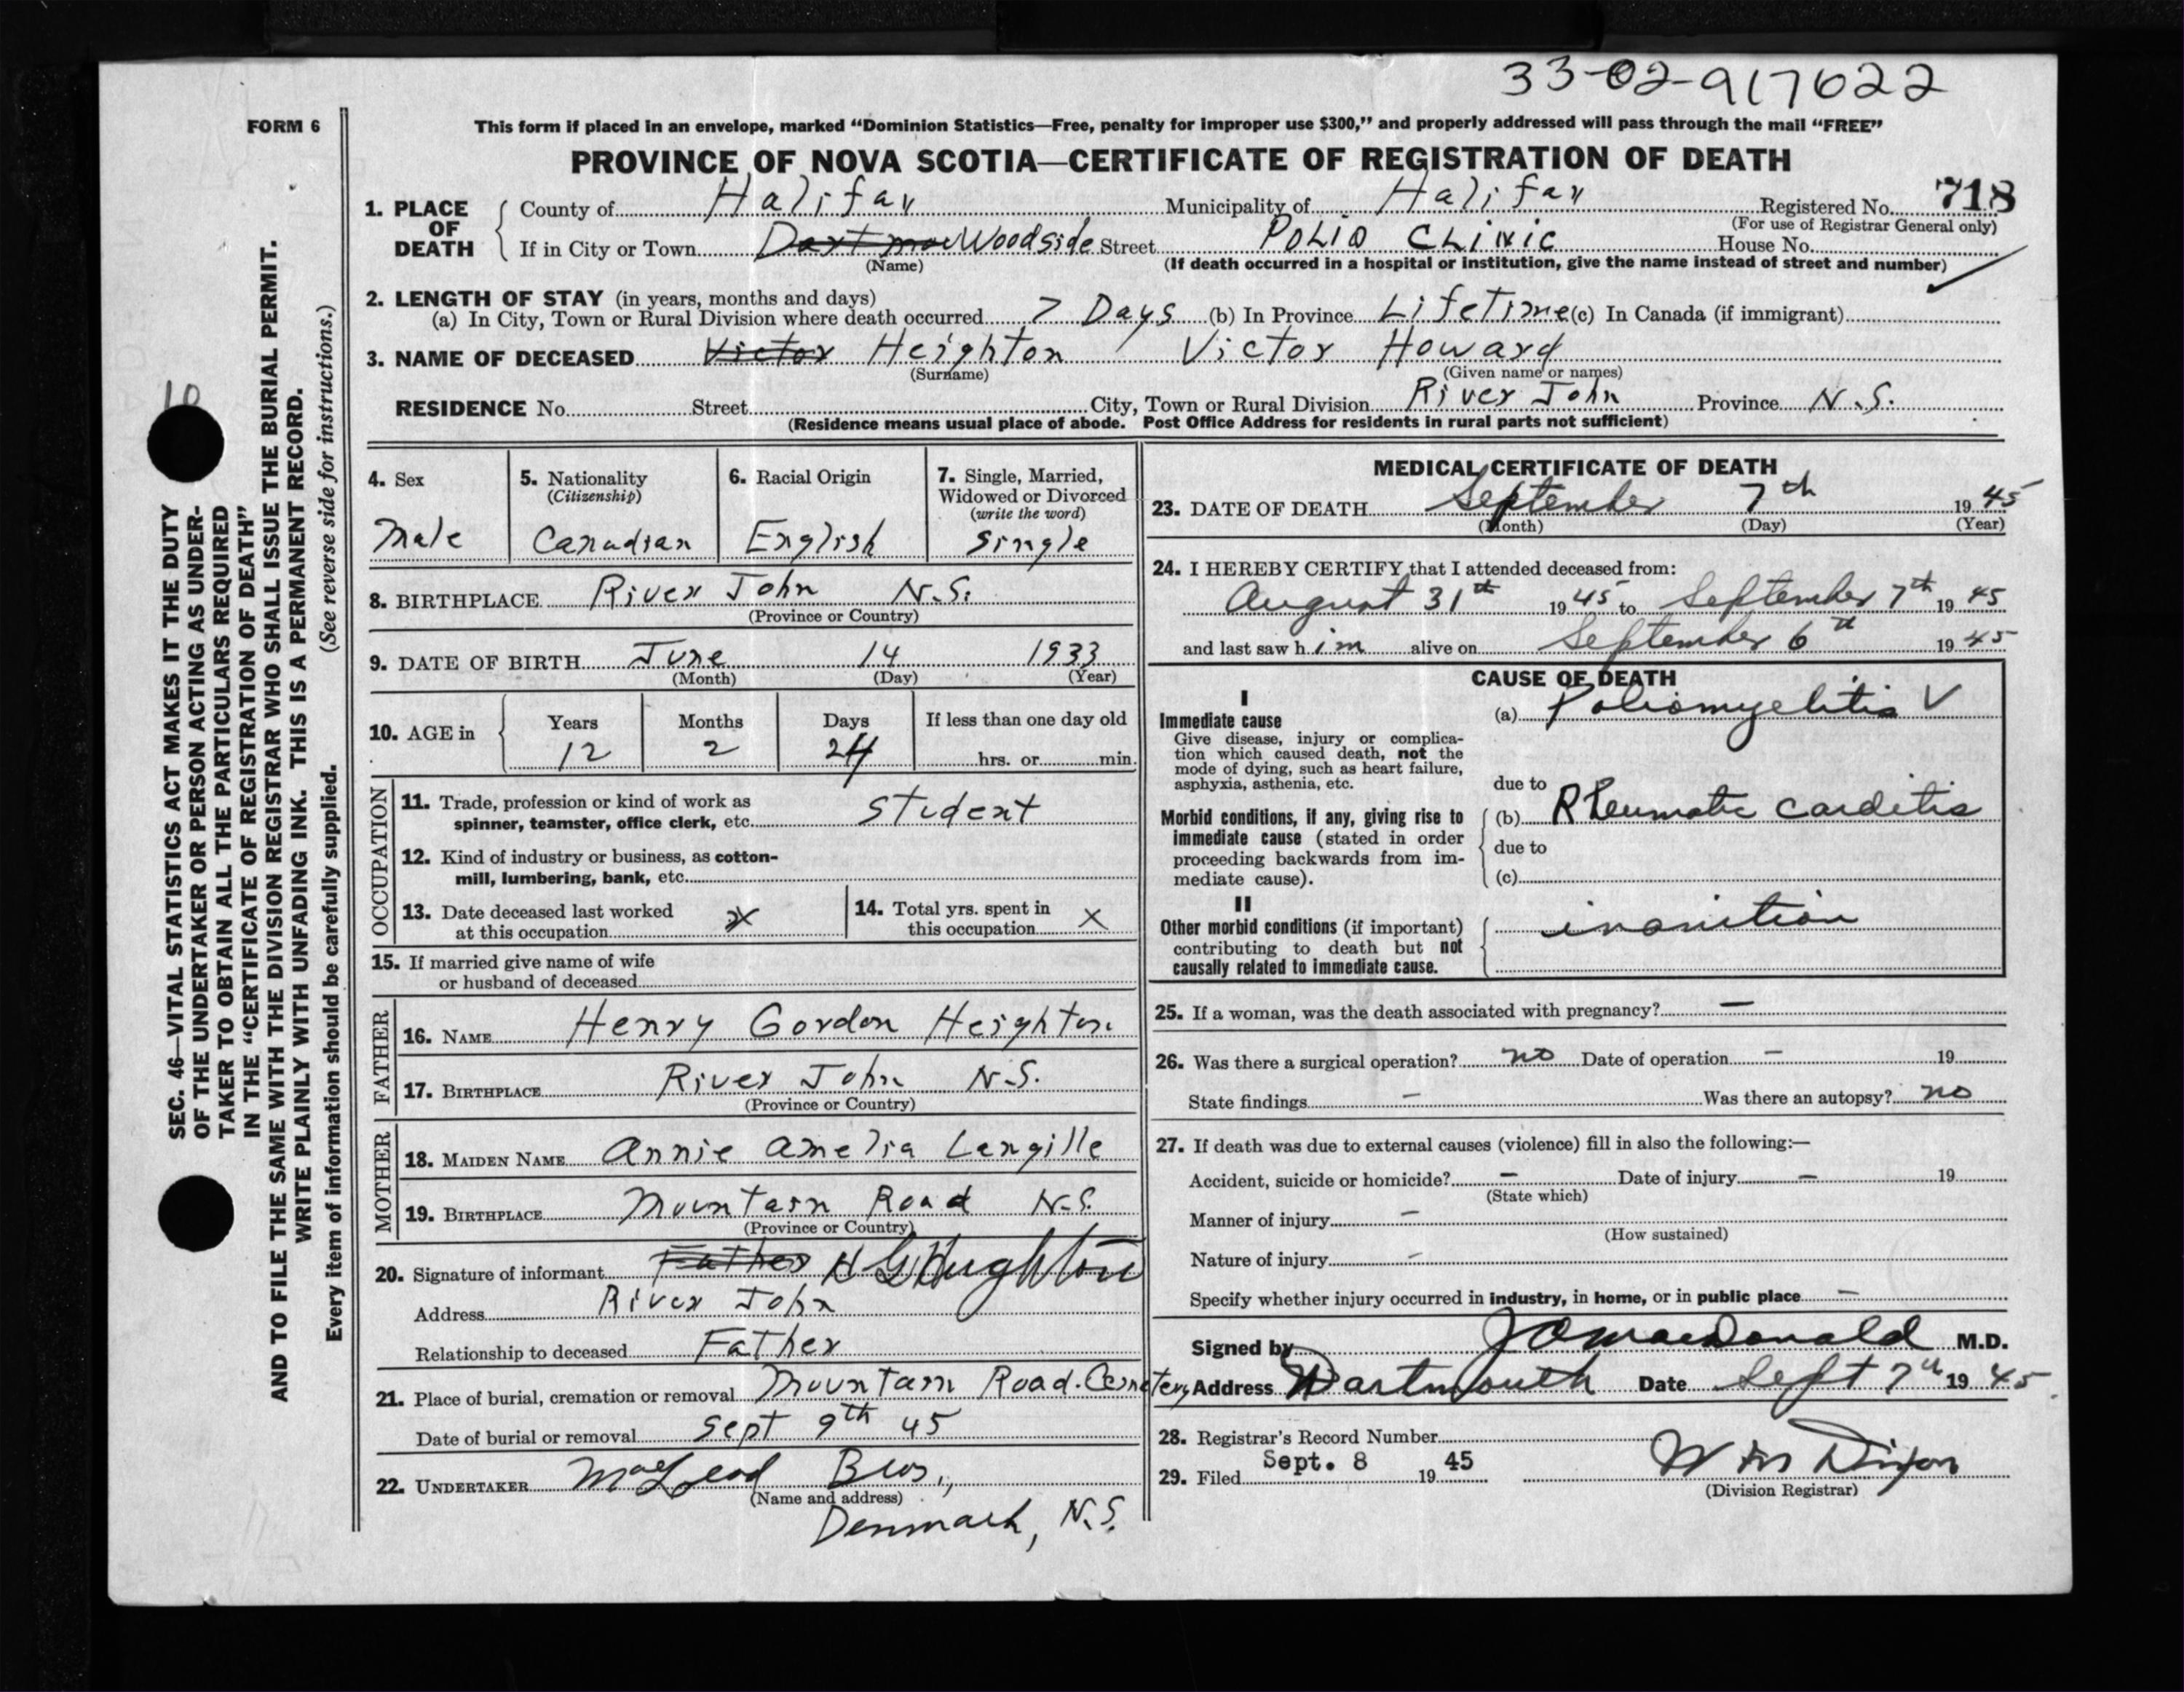 33-02-917622
FORM 6
This form if placed in an envelope, marked “Dominion Statistics—Free, penalty for improper use $300,” and properly addressed will pass through the mail “FREE”
PROVINCE OF NOVA SCOTIA—CERTIFICATE OF REGISTRATION OF DEATH
1. PLACE OF DEATH
County of Halifax Municipality of Halifax Registered No. 718
(For use of Registrar General only)
If in City or Town Dartmou Woodside Street POLIO CLINIC House No.
(Name) (If death occurred in a hospital or institution, give the name instead of street and number)
2. LENGTH OF STAY (in years, months and days)
(a) In City, Town or Rural Division where death occurred 7 Days (b) In Province Lifetime (c) In Canada (if immigrant)
3. NAME OF DECEASED Victor Heighton Victor Howard
(Surname) (Given name or names)
RESIDENCE No. Street City, Town or Rural Division River John Province N.S.
(Residence means usual place of abode. Post Office Address for residents in rural parts not sufficient)
4. Sex
Male
5. Nationality
(Citizenship)
Canadian
6. Racial Origin
English
7. Single, Married,
Widowed or Divorced
(write the word)
Single
8. BIRTHPLACE River John N.S.
(Province or Country)
9. DATE OF BIRTH June 14 1933
(Month) (Day) (Year)
10. AGE in
Years Months Days If less than one day old
12 2 24 hrs. or min.
OCCUPATION
11. Trade, profession or kind of work as
spinner, teamster, office clerk, etc. Student
12. Kind of industry or business, as cotton-
mill, lumbering, bank, etc.
13. Date deceased last worked
at this occupation X
14. Total yrs. spent in
this occupation X
15. If married give name of wife
or husband of deceased
FATHER
16. NAME Henry Gordon Heighton
17. BIRTHPLACE River John N.S.
(Province or Country)
MOTHER
18. MAIDEN NAME Annie Amelia Langille
19. BIRTHPLACE Mountain Road N.S.
(Province or Country)
20. Signature of informant Father H G Heighton
Address River John
Relationship to deceased Father
21. Place of burial, cremation or removal Mountain Road Cemetery
Date of burial or removal Sept 9th 45
22. UNDERTAKER MacLeod Bros.,
(Name and address)
Denmark, N.S.
MEDICAL CERTIFICATE OF DEATH
23. DATE OF DEATH September 7th 1945
(Month) (Day) (Year)
24. I HEREBY CERTIFY that I attended deceased from:
August 31th 1945 to September 7th 1945
and last saw him alive on September 6th 1945
CAUSE OF DEATH
I
Immediate cause
Give disease, injury or complica-
tion which caused death, not the
mode of dying, such as heart failure,
asphyxia, asthenia, etc.
(a) Poliomyelitis V
due to
Morbid conditions, if any, giving rise to
immediate cause (stated in order
proceeding backwards from im-
mediate cause).
(b) Rheumatic carditis
due to
(c)
II
Other morbid conditions (if important)
contributing to death but not
causally related to immediate cause.
inanition
25. If a woman, was the death associated with pregnancy? —
26. Was there a surgical operation? no Date of operation – 19
State findings – Was there an autopsy? no
27. If death was due to external causes (violence) fill in also the following:—
Accident, suicide or homicide? – Date of injury – 19
(State which)
Manner of injury –
(How sustained)
Nature of injury –
Specify whether injury occurred in industry, in home, or in public place –
Signed by J O MacDonald M.D.
Address Dartmouth Date Sept 7th 1945.
28. Registrar's Record Number
29. Filed Sept. 8 1945 W M Dixon
(Division Registrar)
10
SEC. 46—VITAL STATISTICS ACT MAKES IT THE DUTY
OF THE UNDERTAKER OR PERSON ACTING AS UNDER-
TAKER TO OBTAIN ALL THE PARTICULARS REQUIRED
IN THE “CERTIFICATE OF REGISTRATION OF DEATH”
AND TO FILE THE SAME WITH THE DIVISION REGISTRAR WHO SHALL ISSUE THE BURIAL PERMIT.
WRITE PLAINLY WITH UNFADING INK. THIS IS A PERMANENT RECORD.
Every item of information should be carefully supplied. (See reverse side for instructions.)